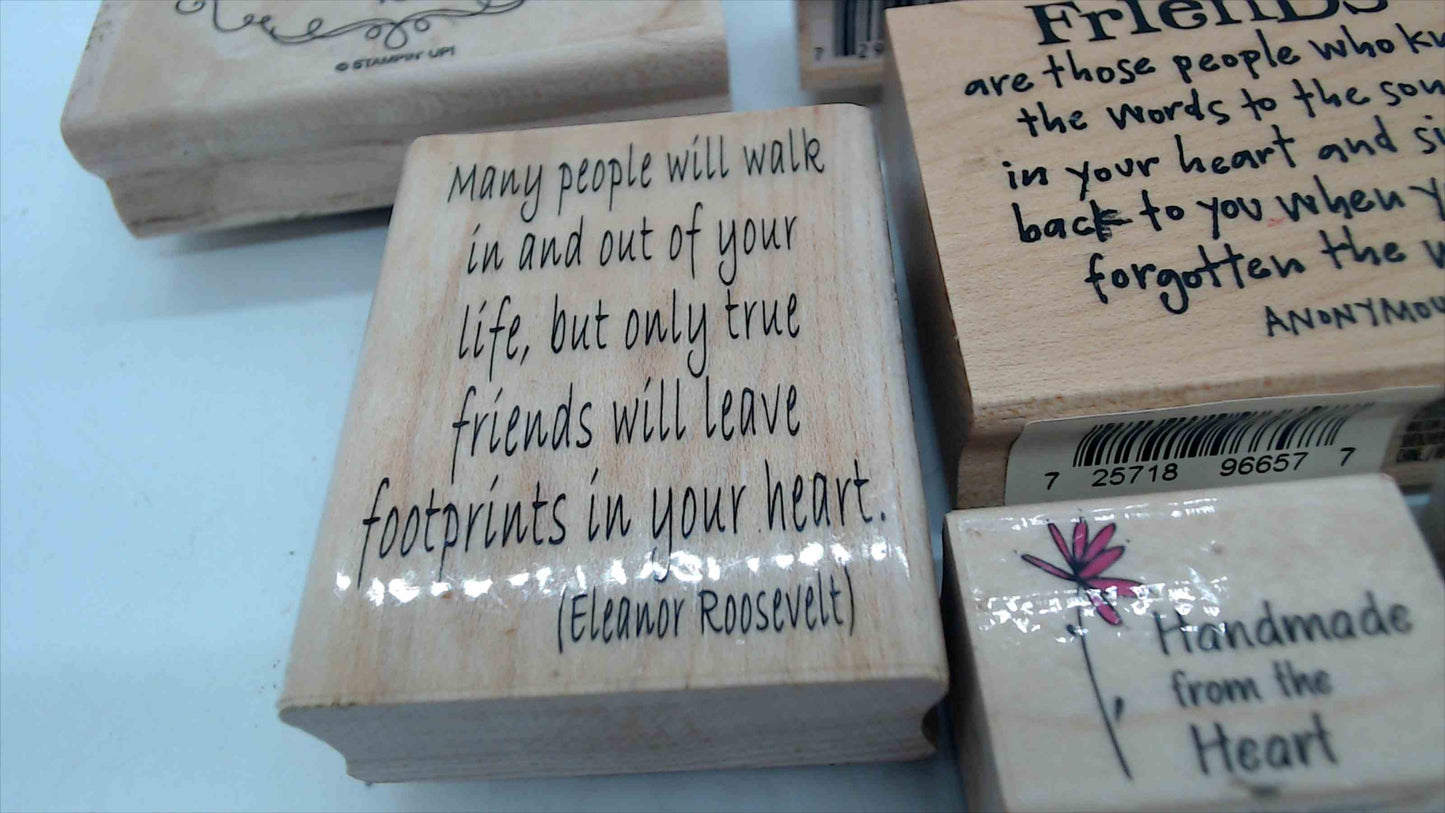 © STAMPIN' UP!
Many people will walk
in and out of your
life, but only true
friends will leave
footprints in your heart.
(Eleanor Roosevelt)
7 29
Friends
are those people who
the words to the
in your heart and
back to you when
forgotten the
7 25718 96657 7
Handmade
from the
Heart